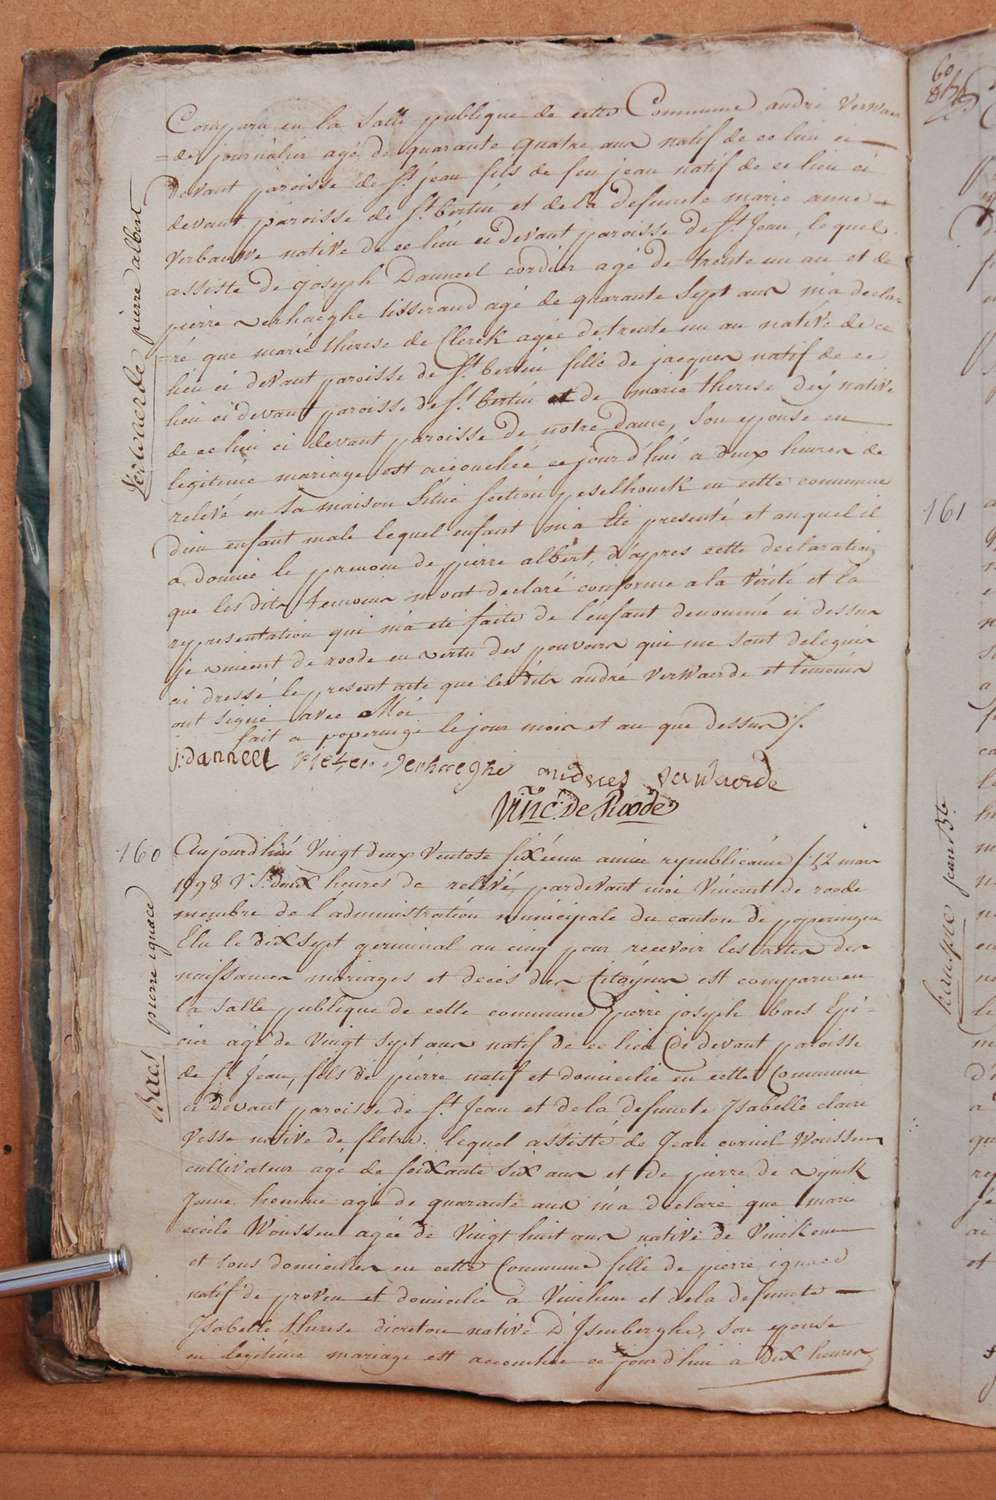 Comparu en la Salle publique de cette Commune andré Verwaer
=de journalier agé de quarante quatre ans natif de ce lieu ci
devant paroisse de St. jean fils de feu jean natif de ce lieu ci
devant paroisse de St. bertin et de la defuncte marie anne
Verbauwe native de ce lieu ci devant paroisse de St. Jean, lequel
assisté de joseph Danneel cordier agé de trente un an et de
pierre verhaeghe tisserand agé de quarante Sept ans m'a decla=
=ré que marie therese de Clerck agée de trente un an native de ce
lieu ci devant paroisse de St. bertin fille de jacques natif de ce
lieu ci devant paroisse de St. bertin et de marie therese deÿ native
de ce lieu ci devant paroisse de notre dame, son epouse en
legitime mariage est accouchée ce jour d'hui a deux heures de
relevé en sa maison située section peselhouck en cette commune
d'un enfant male lequel enfant m'a été presenté et auquel il
a donnée le prenom de pierre albert, d'apres cette declaration
que les dits temoins m'ont declaré conforme a la vérité et la
representation qui m'a été faite de l'enfant denommé ci dessus
je vincent de roode en vertu des pouvoirs qui me sont delegués
ai dressé le present acte que les dits andré Verwaerde et temoins
ont signé avec Moi
fait a poperinge le jour mois et an que dessus
j: danneel Pieter verhaeghe andries verwaerde
Vinc: De Roode
Verwaerde pierre albert
160
Aujourd'hui Vingt deux Ventose sixième année republicaine / 12 mars
1798 V St. deux heures de relevé, pardevant moi Vincent de roode
membre de l'administration municipale du canton de poperingue
Elu le dix sept germinal an cinq pour recevoir les actes des
naissances mariages et décès des Citoÿens est comparu en
la salle publique de cette commune pierre joseph baes Epi-
cier agé de Vingt sept ans natif de ce lieu ci devant paroisse
de St. Jean, fils de pierre natif et domicilié en cette Commune
ci devant paroisse de St. Jean et de la defuncte Isabelle claire
Vesse native de fletre. lequel assisté de Jean Woussen
cultivateur agé de soixante six ans et de pierre de Rijck
Jeune homme agé de quarante ans m'a declaré que marie
cecile Woussen agée de Vingt huit ans native de Vinckem
et tous domiciliés en cette Commune fille de pierre ignace
natif de proven et domicilié à Vinckem et de la defuncte
Isabelle therese native d'Isenberghe, son epouse
en legitime mariage est accouchée ce jour d'hui à dix heures
Baes pierre ignace
60
161